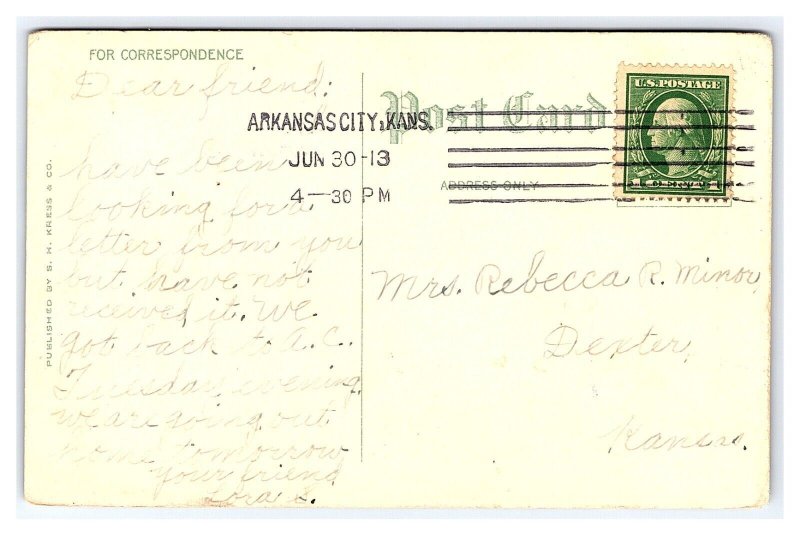 FOR CORRESPONDENCE
Dear friend:
have been
looking for a
letter from you
but have not
received it. We
got back to A.C.
Tuesday evening.
we are going out
home tomorrow
Your friend
Cora S.
PUBLISHED BY S. H. KRESS & CO.
Post Card
ADDRESS ONLY
ARKANSAS CITY, KANS.
JUN 30-13
4-30 PM
U.S. POSTAGE
Mrs. Rebecca R. Minor,
Dexter,
Kansas.